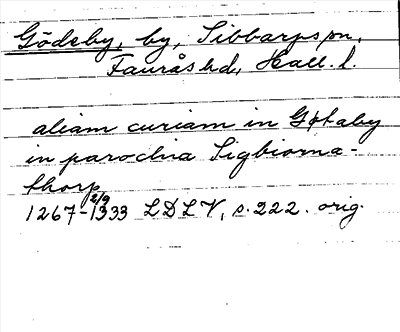 Gödeby, by, Sibbarps sn,
Faurås hd, Hall. l.
aliam curiam in Gøtaby
in parochia Sigbiorna-
thorp
1267-1333 2/9 LDLV, s. 222. orig.